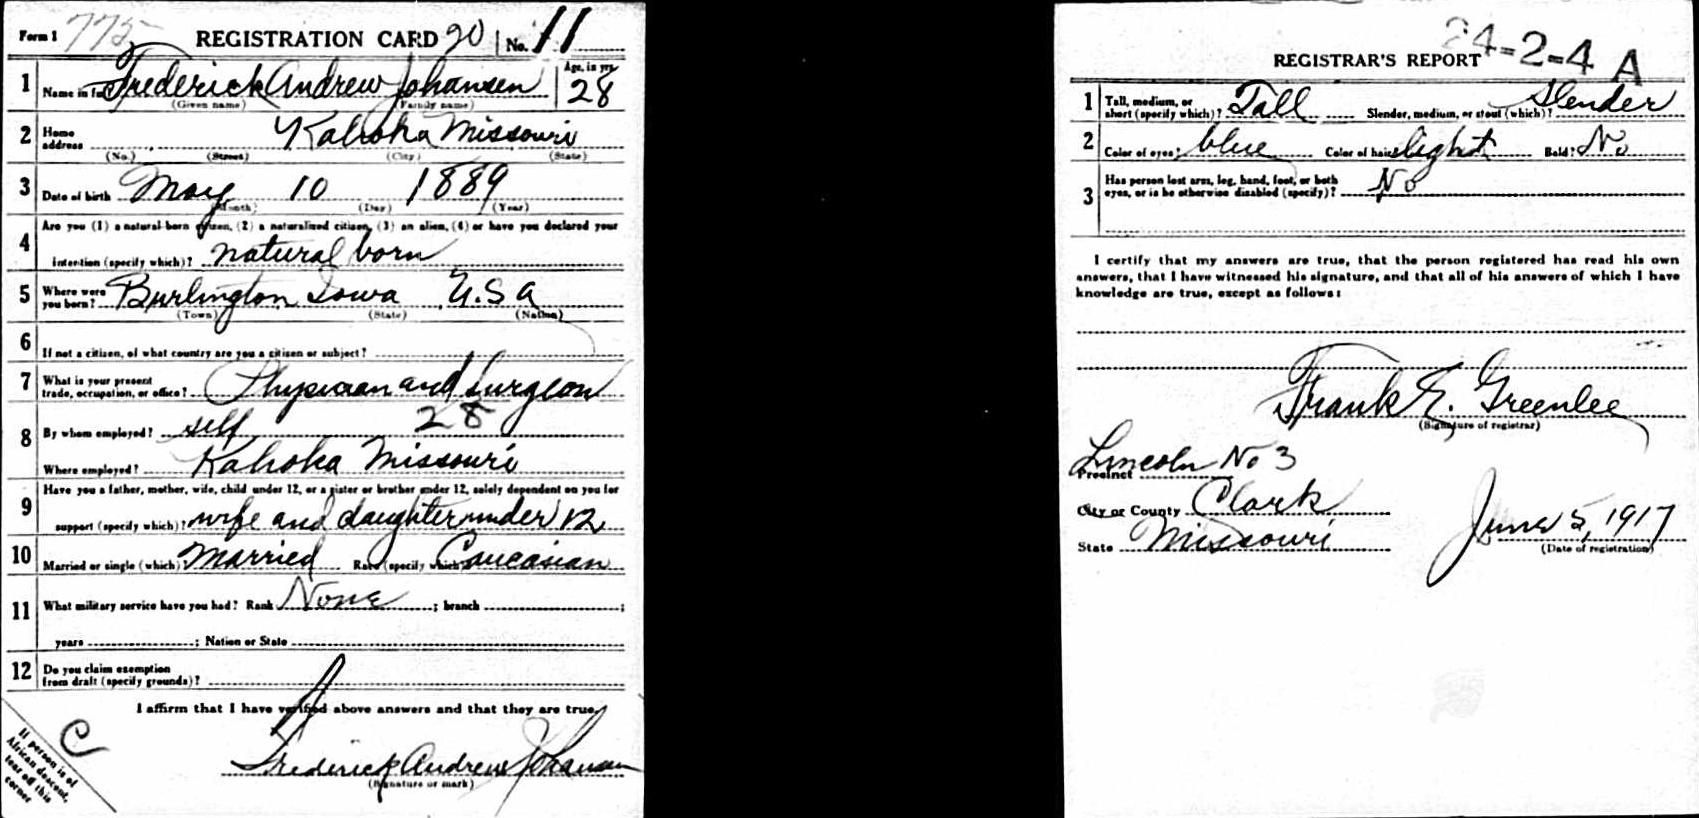 Form 1 775 REGISTRATION CARD 20 No. 11
1 Name in full Frederick Andrew Johansen Age, in yrs. 28
(Given name) (Family name)
2 Home address Kahoka Missouri
(No.) (Street) (City) (State)
3 Date of birth May 10 1889
(Month) (Day) (Year)
4 Are you (1) a natural-born citizen, (2) a naturalized citizen, (3) an alien, (4) or have you declared your
intention (specify which)? natural born
5 Where were you born? Burlington Iowa U.S A
(Town) (State) (Nation)
6 If not a citizen, of what country are you a citizen or subject?
7 What is your present trade, occupation, or office? Physician and Surgeon
28
8 By whom employed? self
Where employed? Kahoka Missouri
9 Have you a father, mother, wife, child under 12, or a sister or brother under 12, solely dependent on you for
support (specify which)? wife and daughter under 12
10 Married or single (which)? Married Race (specify which)? Caucasian
11 What military service have you had? Rank None ; branch ;
years ; Nation or State
12 Do you claim exemption from draft (specify grounds)?
I affirm that I have verified above answers and that they are true.
Frederick Andrew Johansen
(Signature or mark)
C
If person is of
African descent,
tear off this
corner
24-2-4 A
REGISTRAR'S REPORT
1 Tall, medium, or short (specify which)? Tall Slender, medium, or stout (which)? Slender
2 Color of eyes? blue Color of hair? light Bald? No
3 Has person lost arm, leg, hand, foot, or both
eyes, or is he otherwise disabled (specify)? No
I certify that my answers are true, that the person registered has read his own
answers, that I have witnessed his signature, and that all of his answers of which I have
knowledge are true, except as follows:
Frank E. Greenlee
(Signature of registrar)
Precinct Lincoln No 3
City or County Clark
State Missouri
June 5, 1917
(Date of registration)